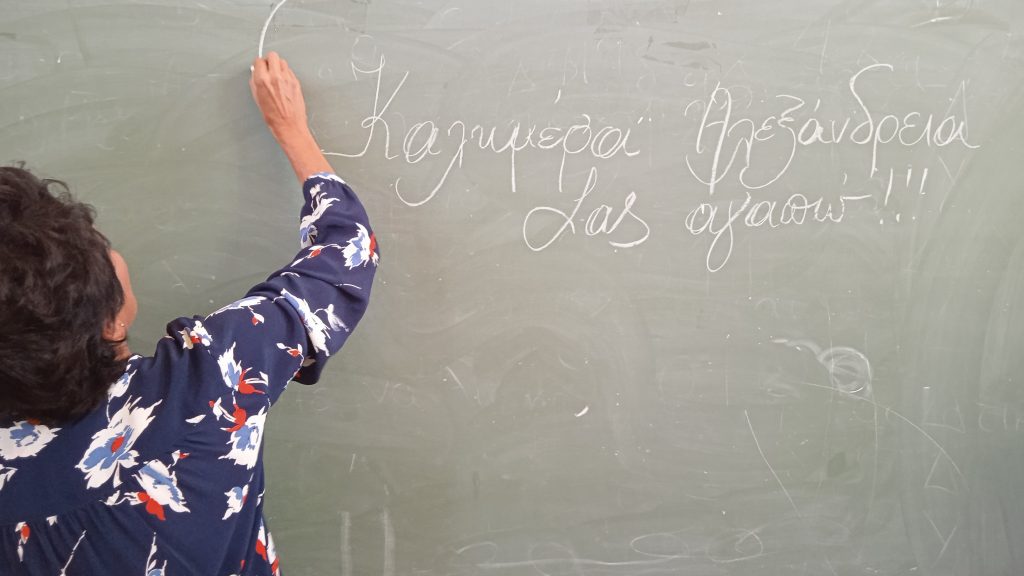 Καλημέρα Αλεξάνδρεια
Σας αγαπώ!!!